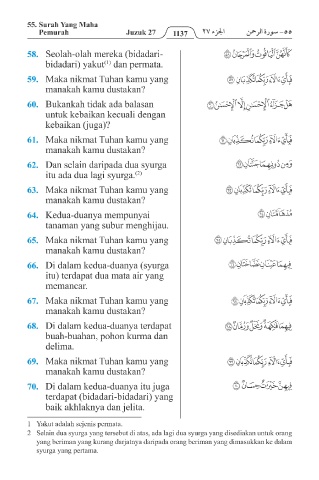 55. Surah Yang Maha
Pemurah Juzuk 27 1137 الجزء ٢٧ ٥٥ - سورة الرحمن
58. Seolah-olah mereka (bidadari-
bidadari) yakut(1) dan permata.
كَأَنَّهُنَّ ٱلْيَاقُوتُ وَٱلْمَرْجَانُ ٥٨
59. Maka nikmat Tuhan kamu yang
manakah kamu dustakan?
فَبِأَيِّ ءَالَآءِ رَبِّكُمَا تُكَذِّبَانِ ٥٩
60. Bukankah tidak ada balasan
untuk kebaikan kecuali dengan
kebaikan (juga)?
هَلْ جَزَآءُ ٱلْإِحْسَٰنِ إِلَّا ٱلْإِحْسَٰنُ ٦٠
61. Maka nikmat Tuhan kamu yang
manakah kamu dustakan?
فَبِأَيِّ ءَالَآءِ رَبِّكُمَا تُكَذِّبَانِ ٦١
62. Dan selain daripada dua syurga
itu ada dua lagi syurga.(2)
وَمِن دُونِهِمَا جَنَّتَانِ ٦٢
63. Maka nikmat Tuhan kamu yang
manakah kamu dustakan?
فَبِأَيِّ ءَالَآءِ رَبِّكُمَا تُكَذِّبَانِ ٦٣
64. Kedua-duanya mempunyai
tanaman yang subur menghijau.
مُدْهَآمَّتَانِ ٦٤
65. Maka nikmat Tuhan kamu yang
manakah kamu dustakan?
فَبِأَيِّ ءَالَآءِ رَبِّكُمَا تُكَذِّبَانِ ٦٥
66. Di dalam kedua-duanya (syurga
itu) terdapat dua mata air yang
memancar.
فِيهِمَا عَيْنَانِ نَضَّاخَتَانِ ٦٦
67. Maka nikmat Tuhan kamu yang
manakah kamu dustakan?
فَبِأَيِّ ءَالَآءِ رَبِّكُمَا تُكَذِّبَانِ ٦٧
68. Di dalam kedua-duanya terdapat
buah-buahan, pohon kurma dan
delima.
فِيهِمَا فَٰكِهَةٌ وَنَخْلٌ وَرُمَّانٌ ٦٨
69. Maka nikmat Tuhan kamu yang
manakah kamu dustakan?
فَبِأَيِّ ءَالَآءِ رَبِّكُمَا تُكَذِّبَانِ ٦٩
70. Di dalam kedua-duanya itu juga
terdapat (bidadari-bidadari) yang
baik akhlaknya dan jelita.
فِيهِنَّ خَيْرَٰتٌ حِسَانٌ ٧٠
1 Yakut adalah sejenis permata.
2 Selain dua syurga yang tersebut di atas, ada lagi dua syurga yang disediakan untuk orang
yang beriman yang kurang darjatnya daripada orang beriman yang dimasukkan ke dalam
syurga yang pertama.